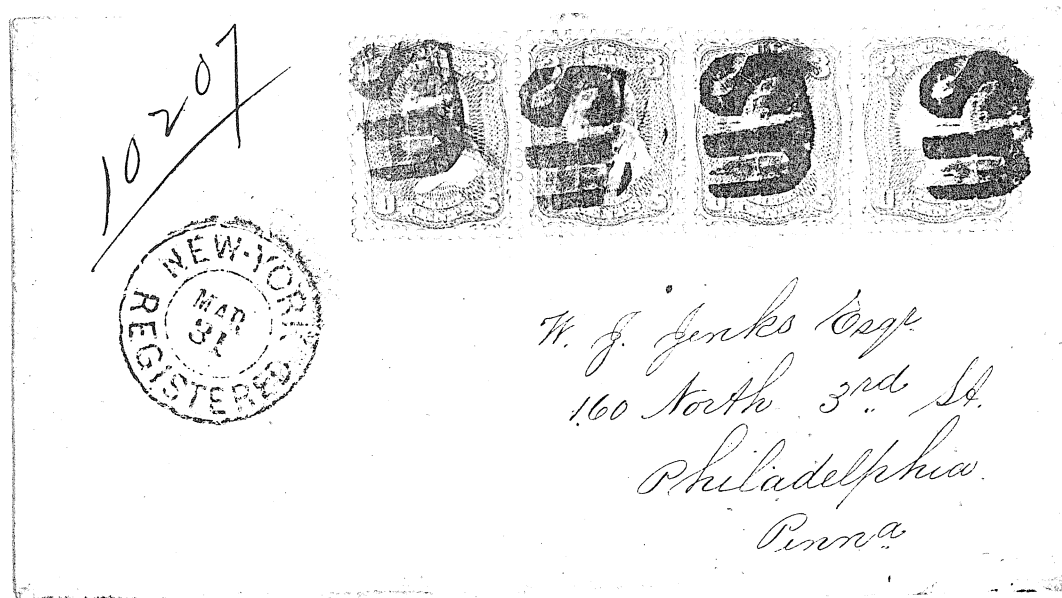 10207
NEW-YORK
MAR
31
REGISTERED
W. J. Jenks Esqr.
160 North 3rd St.
Philadelphia
Penna